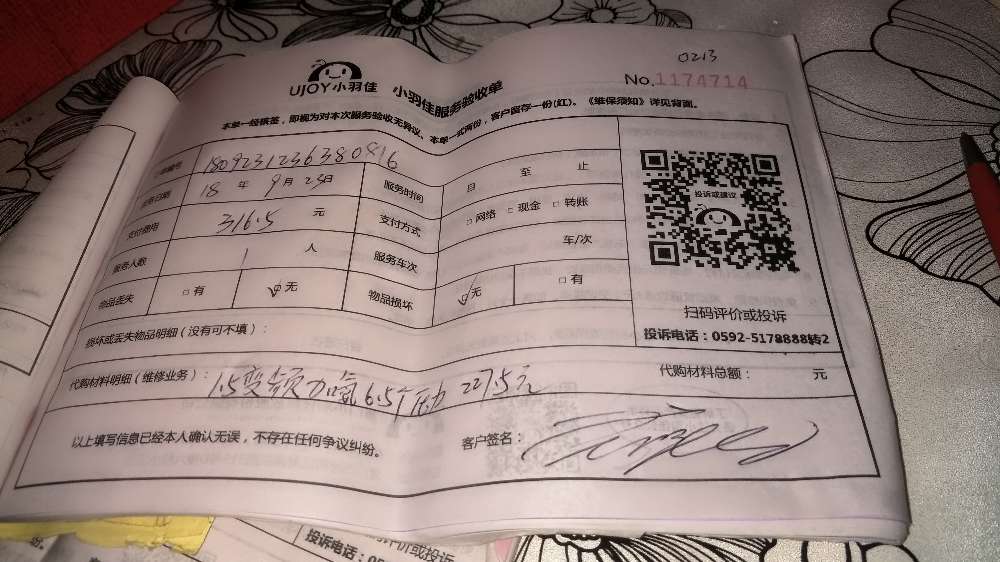 0213
UJOY小羽佳 小羽佳服务验收单 No.1174714
本单一经核签，即视为对本次服务验收无异议、本单一式两份，客户留存一份(红)。《维保须知》详见背面。
1809231236380816
18 年 9 月 23日 服务时间 自 至 止
支付费用 316.5 元 支付方式 □网络 □现金 □转账
服务人数 1 人 服务车次 车/次
物品丢失 □有 ☑无 物品损坏 ☑无 □有
投诉或建议
扫码评价或投诉
投诉电话：0592-5178888转2
损坏或丢失物品明细（没有可不填）：
代购材料明细（维修业务）： 1.5变频加氟6.5个压力 227.5元 代购材料总额： 元
以上填写信息已经本人确认无误，不存在任何争议纠纷。 客户签名：
评价或投诉
投诉电话：0592